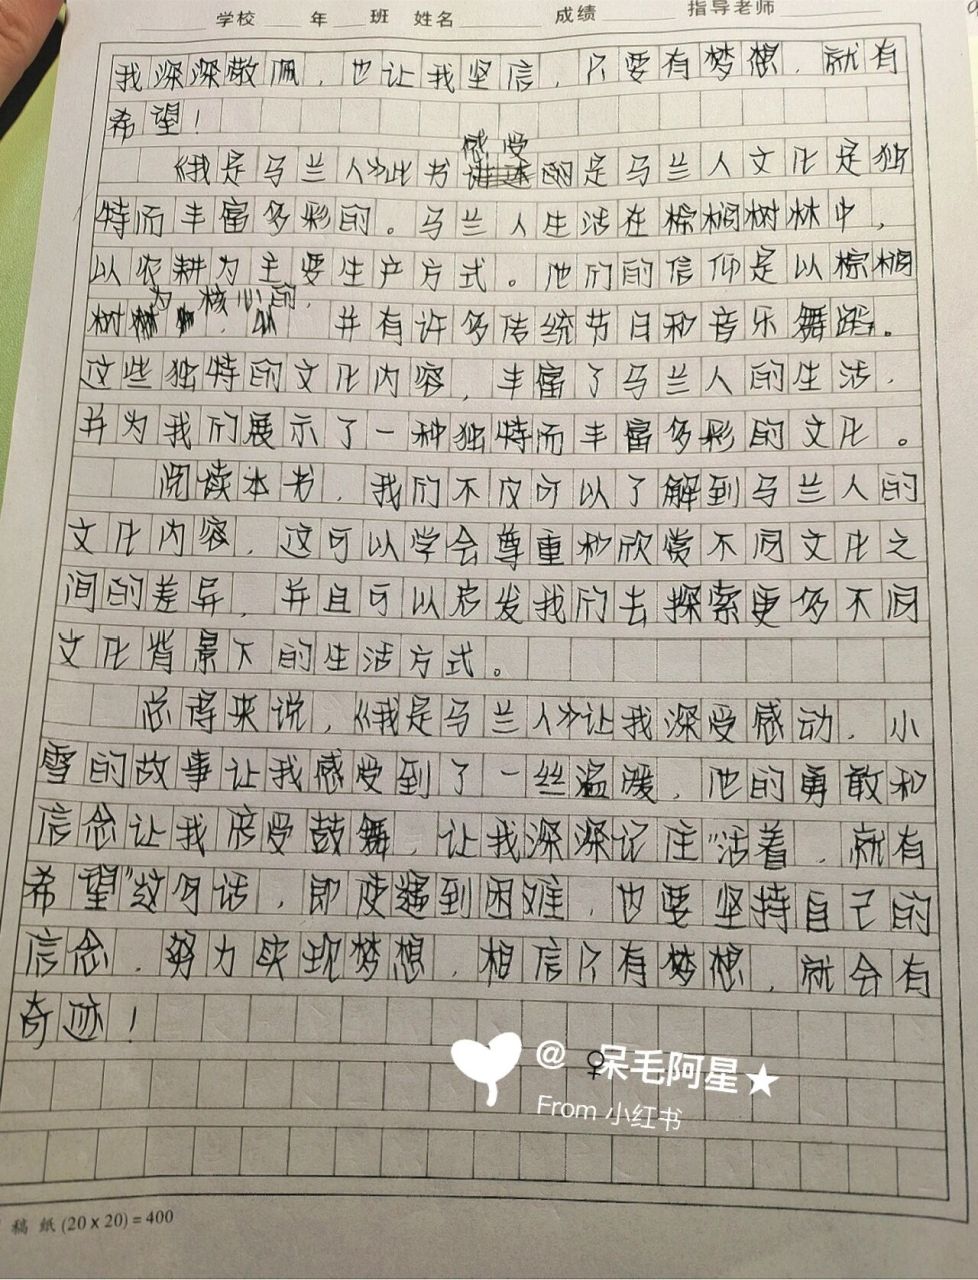 学校 年 班 姓名 成绩 指导老师
我深深敬佩，也让我坚信，只要有梦想，就有
希望！
感受
《我是乌兰人》此书的是乌兰人文化是独
特而丰富多彩的。乌兰人生活在棕榈树林中，
以农耕为主要生产方式。他们的信仰是以棕榈
为核心的，
树 并有许多传统节日和音乐舞蹈。
这些独特的文化内容，丰富了乌兰人的生活，
并为我们展示了一种独特而丰富多彩的文化。
阅读本书，我们不仅可以了解到乌兰人的
文化内容，这可以学会尊重和欣赏不同文化之
间的差异，并且可以启发我们去探索更多不同
文化背景下的生活方式。
总得来说，《我是乌兰人》让我深受感动，小
雪的故事让我感受到了一丝温暖，他的勇敢和
信念让我倍受鼓舞，让我深深记住"活着，就有
希望"这句话，即使遇到困难，也要坚持自己的
信念，努力实现梦想，相信只有梦想，就会有
奇迹！
@♀呆毛阿星★
From 小红书
稿纸(20×20)=400